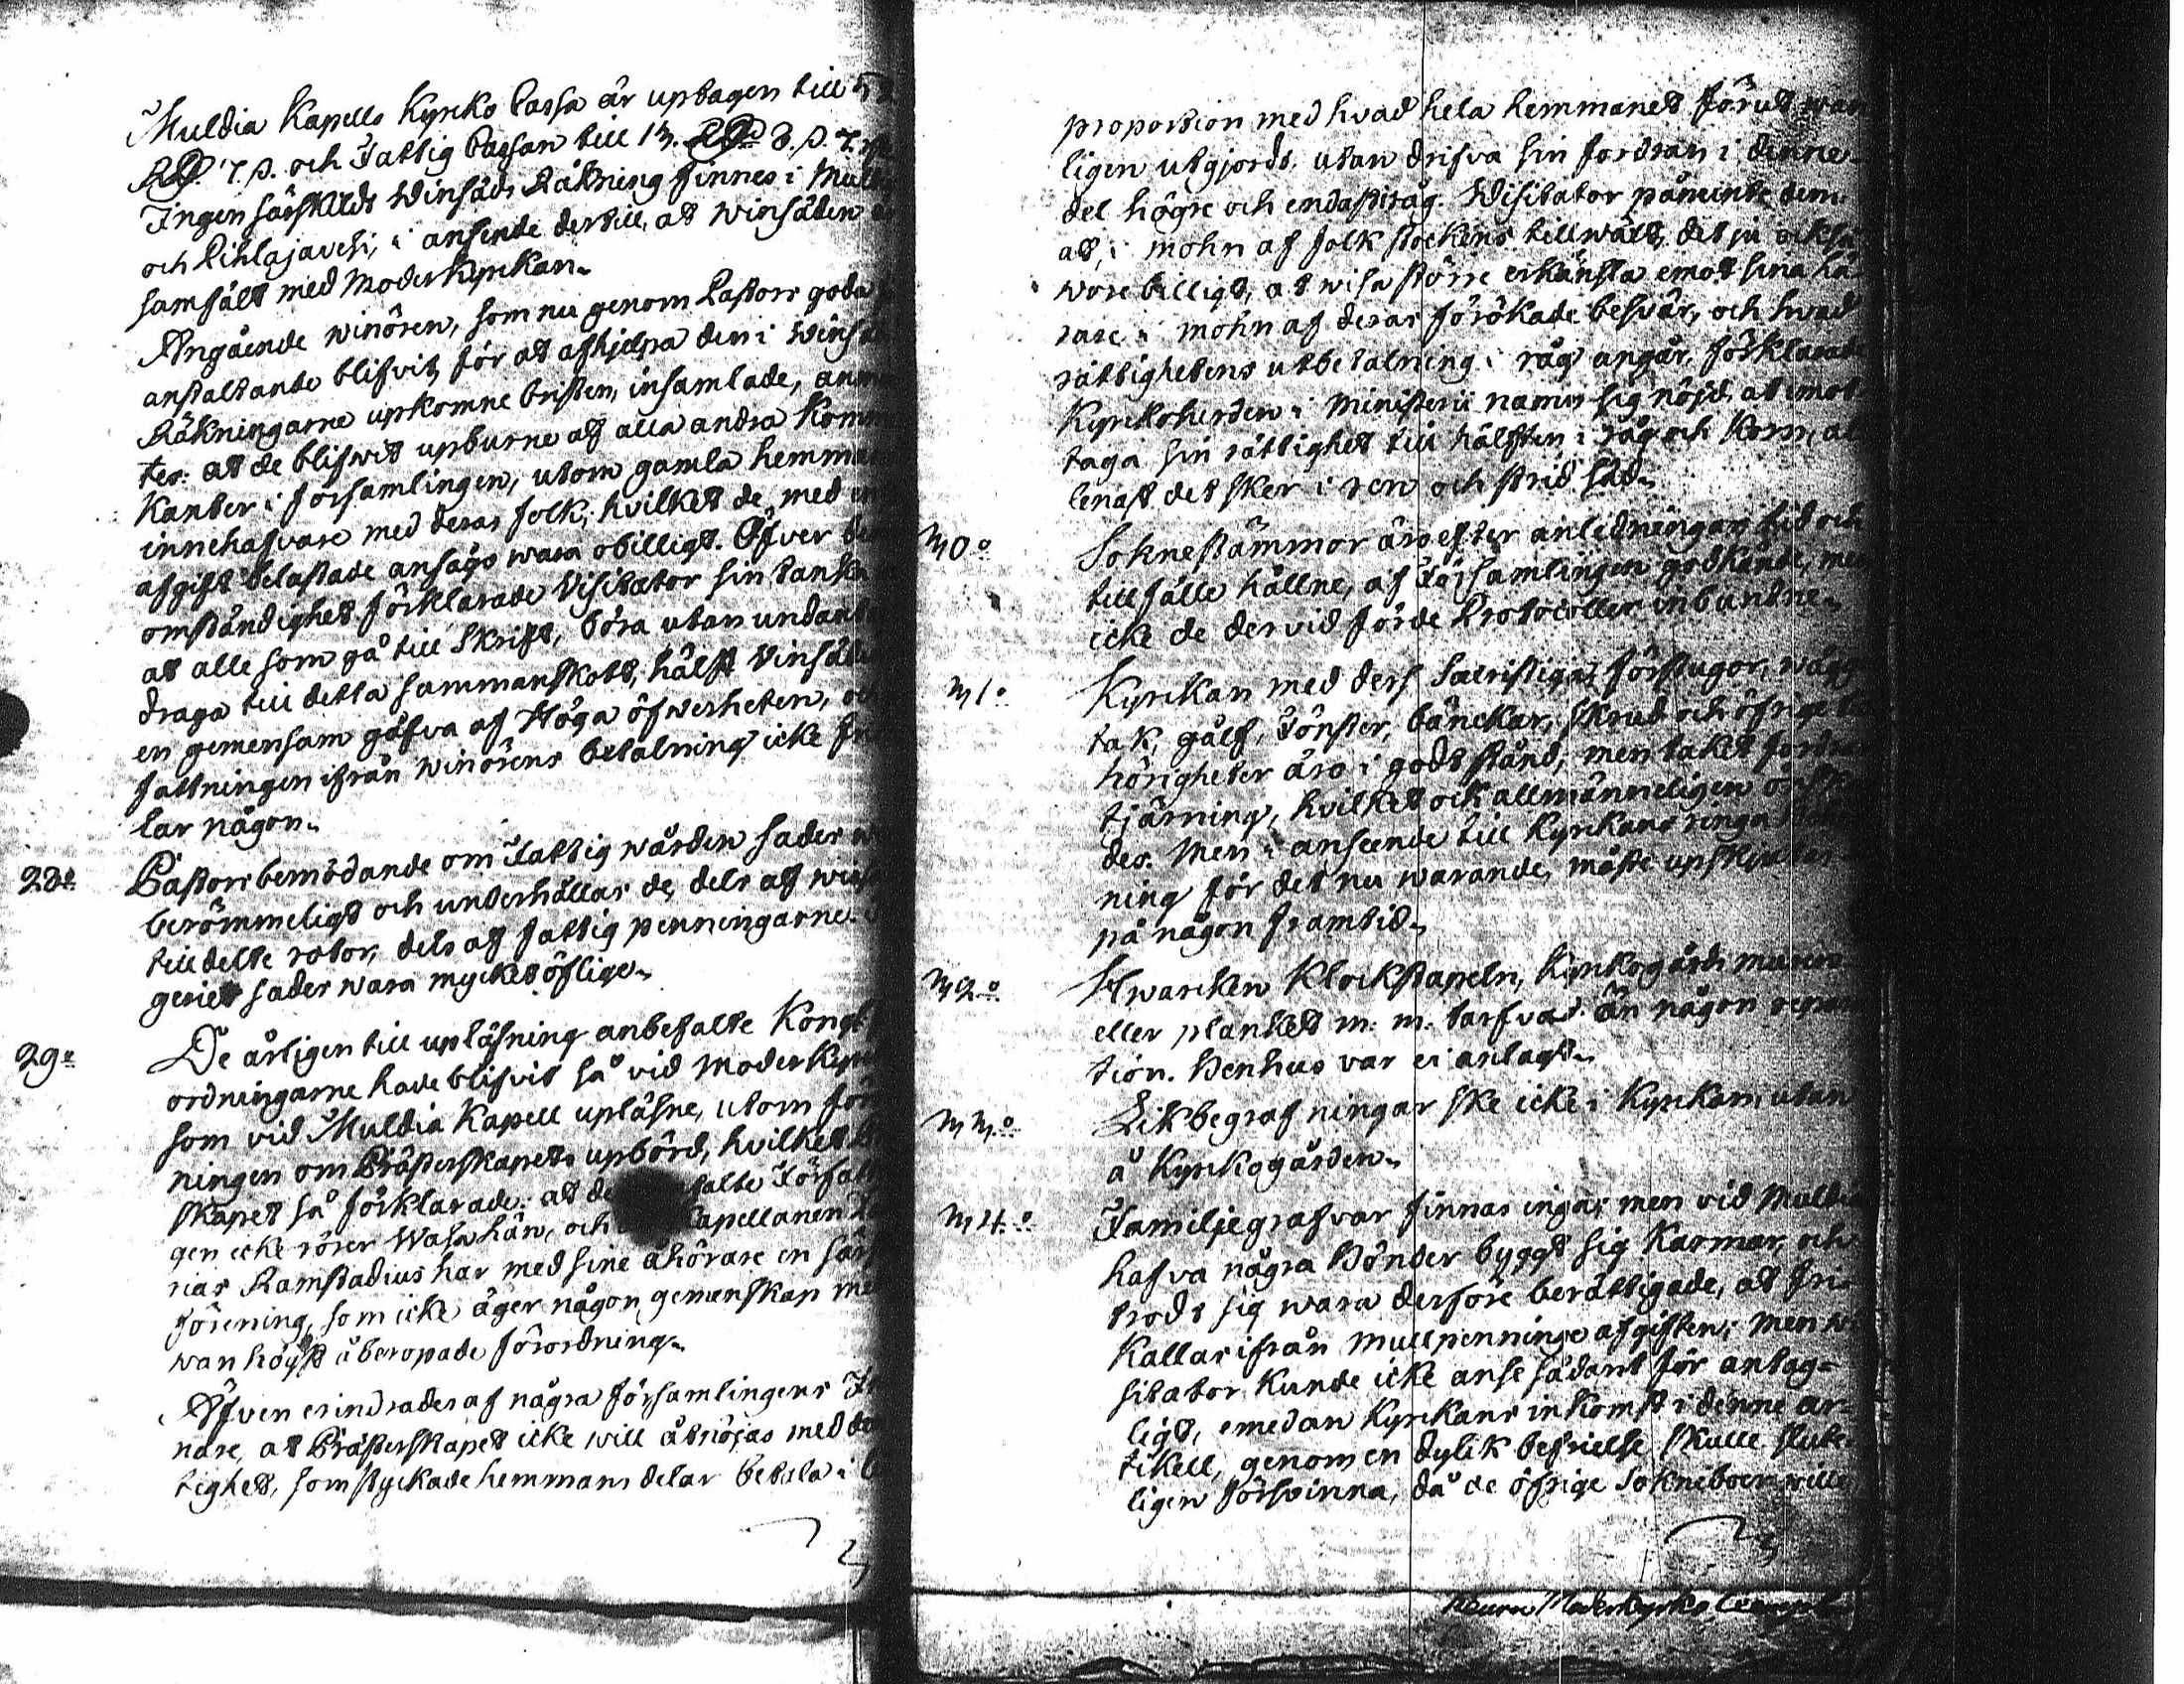 Muldia Kapells Kyrko Cassa är uptagen till 52
RD. 7. s. och Fattig Cassan till 13. RD. 3. s. 7.
Ingen särskildt Winsäds Räkning finnes i Muldia
och Pihlajavesi, i anseende dertill, at winsäden är
samfält med Moderkyrkan.
Angående winören, som nu genom Pastors goda
anstaltande blifvit, för at afhjelpa den i Winsäds
Räkningarne upkomne bristen, insamlade,
tes: at de blifwit upburne af alla andra Kommuni
Kanter i församlingen, utom gamla hemmans
innehafvare med deras folk; hvilket de, med
afgift belastade ansågo wara obilligt. Öfver
omständighet förklarade Visitator sin tanka
at alle som gå till Skrift, böra utan undantag
draga till detta sammanskott, hälst Vinsäden
en gemensam gåfva af Höga öfwerheten, och
fattningen ifrån winörens betalning icke
lar någon.
28:o Pastors bemödande om Fattig wården sades
berömmeligt och underhållas de, dels af wissa
tilldelte rotor, dels af fattig penningarne.
geriet sades wara mycket öflige.
29:o De årligen till upläsning anbefalte Kongl.
ordningarne hade blifvit så vid Moderkyrkan
som vid Muldia Kapell upläsne, utom för
ningen om Prästerskapets upbörd, hvilket
skapet så förklarade: at de falte Författ
gen icke rörer Wasa hän, och apellanen
nas Ramstadius har med sine åhörare en sär
förening, som icke äger någon gemenskap med
wan högst åberopade förordning.
Äfven erindrades af några församlingens
nare, at Prästerskapet icke will åtnöjas med
tighet, som styckade hemmans delar betala i
proportion med hvad hela hemmanet förut wan
ligen utgjordt. utan drifva sin fordran i denne
del högre och endast i råg. Visitator påminte dem:
at, i mohn af folk stockens tillwäxt, det ju också
wore billigt, at wisa större erkänsla emot sina lä
rare i mohn af deras förökade besvär, och hvad
rättighetens utbetalning i råg angår, förklarade
Kyrkoherden i Ministerii namn sig nöjd, at emot
taga sin rättighet till hälften i råg och Korn, al
lenast det sker i ren och strid säd.
30:o Soknestämmor äro efter anledningar, tid och
tillfälle hållne, af Församlingen godkände, men
icke de dervid förde Protocoller inbundne.
31:o Kyrkan med dess Sacristiga, förstugor, wägg
tak, gålf, Fönster, bänckar, skrud och öfrige till
hörigheter äro i godt stånd, men taket fordrar
tjärning, hvilket ock allmänneligen önska
des. Men i anseende till Kyrkans ringa
ning för det nu warande, måste upskjutas
på någon framtid.
32:o Hwarcken Klockstapeln, Kyrkogårds muren
eller planket m: m: tarfvar än någon repara
tion. Benhus var ei anlagt.
33:o Likbegrafningar ske icke i Kyrkan, utan
å Kyrkogården.
34:o Familjegrafvar finnas inga; men vid Muldia
hafva några Bönder byggt sig Karmar, och
trodt sig wara derföre berättigade, at fri
kallas ifrån mullpenninge afgiften; men Wi
sitator kunde icke anse sådant för antag=
ligt, emedan Kyrkans inkomst i denne ar=
tikell, genom en dylik befrielse skulle slute
ligen försvinna, då de öfrige Sokneboer wille
Moderkyrko